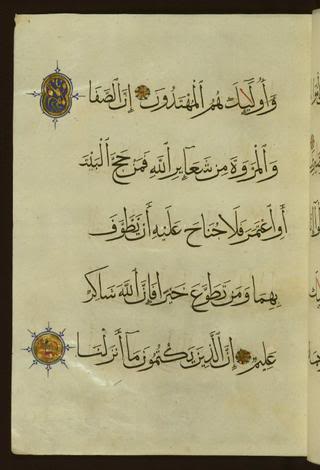 وَأُولَٰئِكَ هُمُ ٱلْمُهْتَدُونَ إِنَّ ٱلصَّفَا
وَٱلْمَرْوَةَ مِن شَعَآئِرِ ٱللَّهِ فَمَنْ حَجَّ ٱلْبَيْتَ
أَوِ ٱعْتَمَرَ فَلَا جُنَاحَ عَلَيْهِ أَن يَطَّوَّفَ
بِهِمَا وَمَن تَطَوَّعَ خَيْرًا فَإِنَّ ٱللَّهَ شَاكِرٌ
عَلِيمٌ إِنَّ ٱلَّذِينَ يَكْتُمُونَ مَآ أَنزَلْنَا